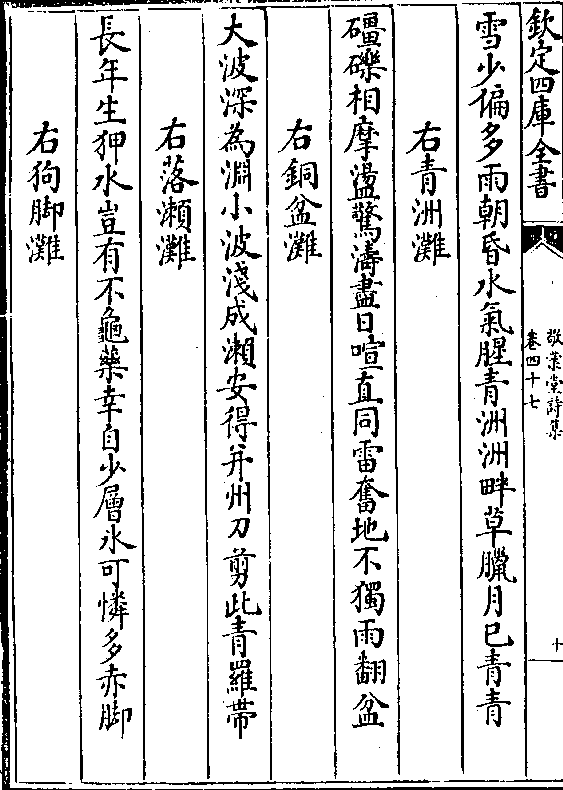 欽定四庫全書
敬業堂詩集
卷四十七
十
雪少偏多雨朝昏水氣腥青洲洲畔草臘月已青青
右青洲灘
礓礫相摩盪驚濤盡日喧直同雷奮地不獨雨翻盆
右銅盆灘
大波深為淵小波淺成瀨安得并州刀剪此青羅帶
右落瀨灘
長年生狎水豈有不龜藥幸自少層氷可憐多赤脚
右狗脚灘